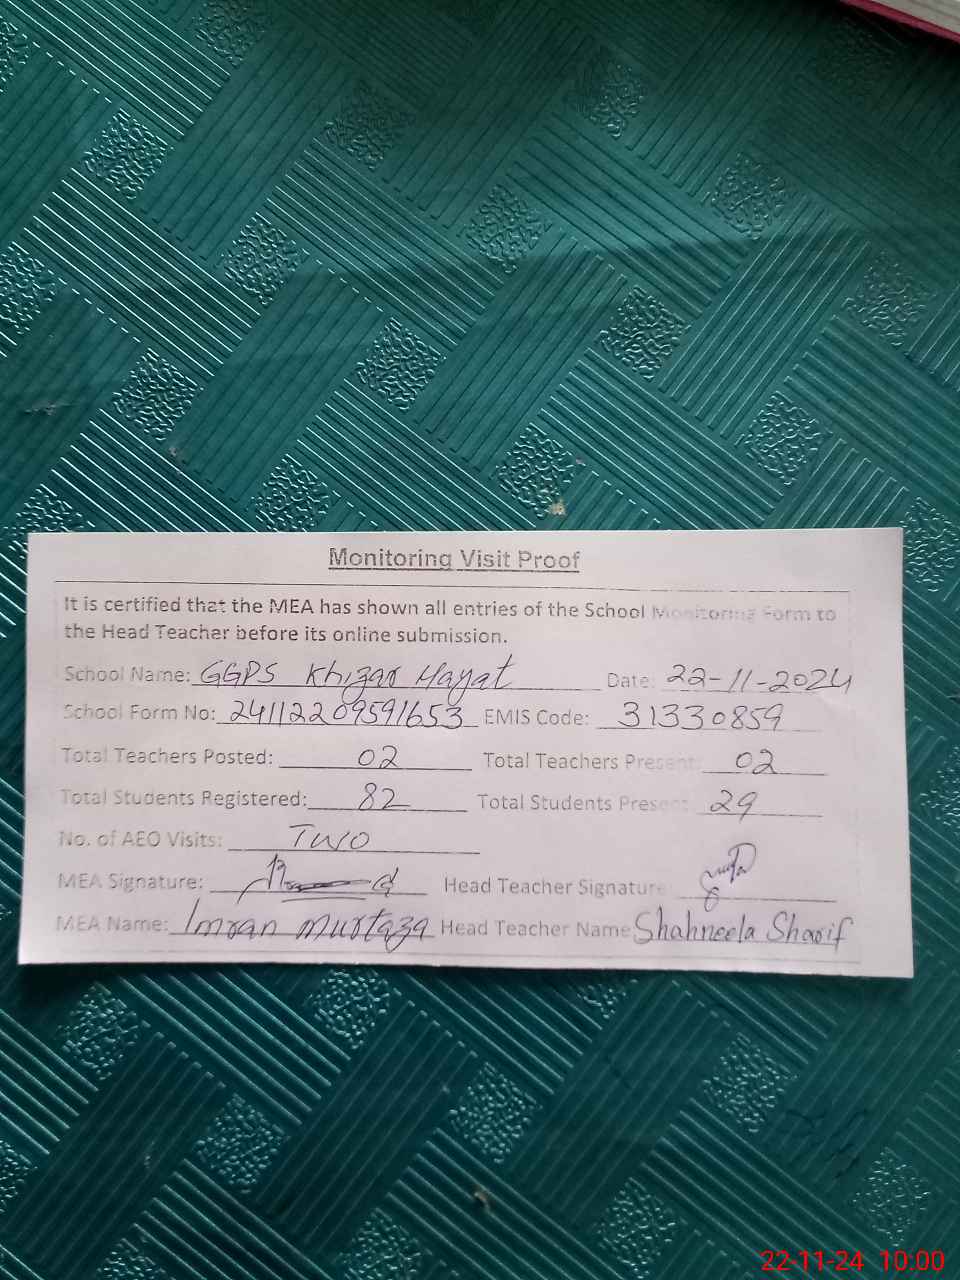 Monitoring Visit Proof
It is certified that the MEA has shown all entries of the School Monitoring Form to
the Head Teacher before its online submission.
School Name: GGPS Khizar Hayat Date: 22-11-2024
School Form No: 24112209591653 EMIS Code: 31330859
Total Teachers Posted: 02 Total Teachers Present: 02
Total Students Registered: 82 Total Students Present: 29
No. of AEO Visits: Two
MEA Signature: Head Teacher Signature
MEA Name: Imran Murtaza Head Teacher Name Shahneela Sharif
22-11-24 10:00